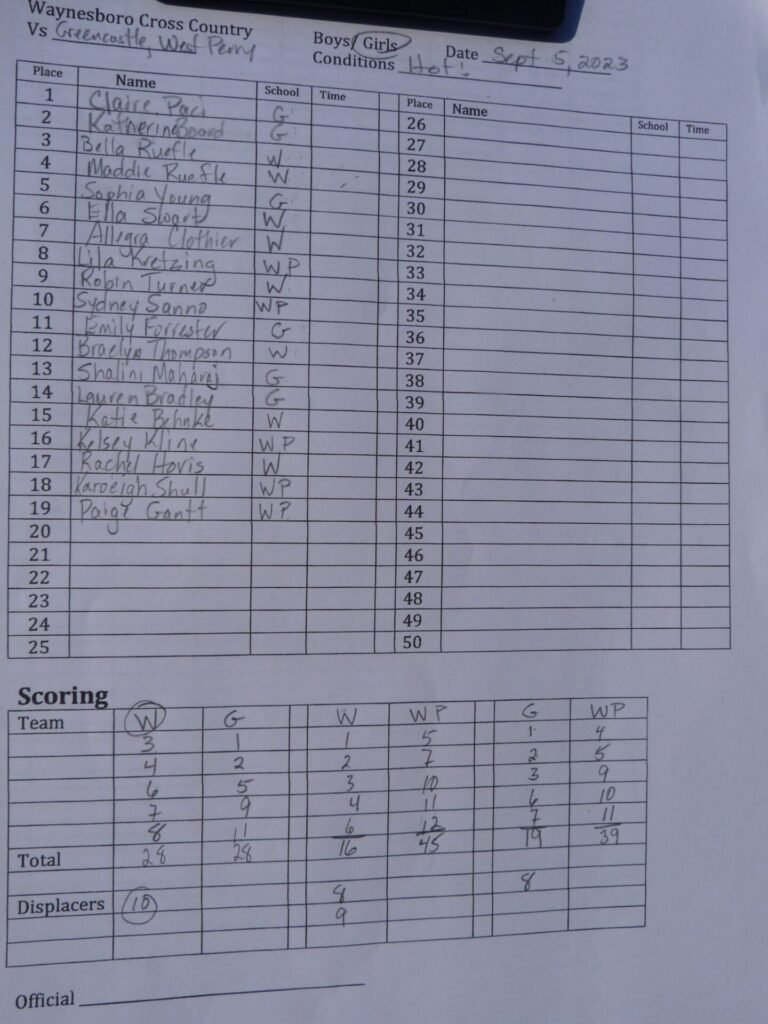 Waynesboro Cross Country
Vs Greencastle, West Perry Boys/Girls Date Sept 5, 2023
Conditions Hot!
Place Name School Time Place Name School Time
1 Claire Paci G 26
2 Katherine Board G 27
3 Bella Ruefle W 28
4 Maddie Ruefle W 29
5 Sophia Young G 30
6 Ella Swart W 31
7 Allegra Clothier W 32
8 Lila Kretzing WP 33
9 Robin Turner W 34
10 Sydney Sanno WP 35
11 Emily Forrester G 36
12 Braelyn Thompson W 37
13 Shalini Maharaj G 38
14 Lauren Bradley G 39
15 Katie Behnke W 40
16 Kelsey Kline WP 41
17 Rachel Hovis W 42
18 Shull WP 43
19 Paige Gantt WP 44
20 45
21 46
22 47
23 48
24 49
25 50
Scoring
Team W G W WP G WP
3 1 1 5 1 4
4 2 2 7 2 5
6 5 3 10 3 9
7 9 4 11 6 10
8 11 6 12 7 11
Total 28 28 16 45 19 39
Displacers 10 8 8
9
Official